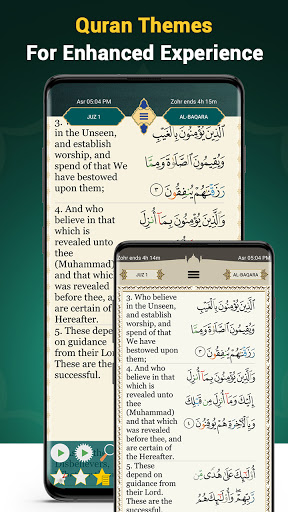 Quran Themes
For Enhanced Experience
Asr 05:04 PM
Zohr ends 4h 15m
JUZ 1
AL-BAQARA
3. Who believe
in the Unseen,
and establish
worship, and
spend of that We
have bestowed
upon them;
الَّذِينَ يُؤْمِنُونَ بِالْغَيْبِ
وَيُقِيمُونَ الصَّلَاةَ وَمِمَّا
رَزَقْنَاهُمْ يُنفِقُونَ ﴿٣﴾
4. And who
believe in that
which is
revealed unto
thee
(Muhammad)
and that which
was revealed
before thee, and
are certain of the
Hereafter.
وَالَّذِينَ يُؤْمِنُونَ بِمَا أُنزِلَ
5. These depend
on guidance
from their Lord.
These are the
successful.
Disbelievers,
Zohr ends 4h 15m
Asr 05:04 PM
JUZ 1
AL-BAQARA
3. Who believe in the
Unseen, and establish
worship, and spend of
that We have
bestowed upon them;
الَّذِينَ يُؤْمِنُونَ بِالْغَيْبِ
وَيُقِيمُونَ الصَّلَاةَ وَمِمَّا
رَزَقْنَاهُمْ يُنفِقُونَ ﴿٣﴾
4. And who believe
in that which is
revealed unto thee
(Muhammad) and
that which was
revealed before thee,
and are certain of the
Hereafter.
وَالَّذِينَ يُؤْمِنُونَ بِمَا أُنزِلَ
إِلَيْكَ وَمَا أُنزِلَ مِن قَبْلِكَ
وَبِالْآخِرَةِ هُمْ يُوقِنُونَ ﴿٤﴾
5. These depend on
guidance from
their Lord. These
are the successful.
أُولَٰئِكَ عَلَىٰ هُدًى مِّن
رَّبِّهِمْ وَأُولَٰئِكَ هُمُ